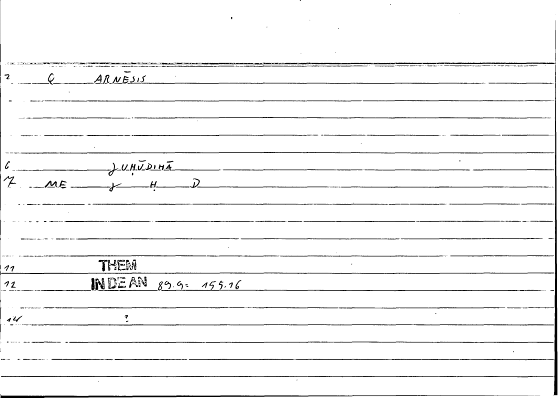 2 Q ARNĒSIS
6 JUḤŪDIMĀ
7 ME J Ḥ D
11 THEM
12 INDEAN 89.9: 155.16
14 ?